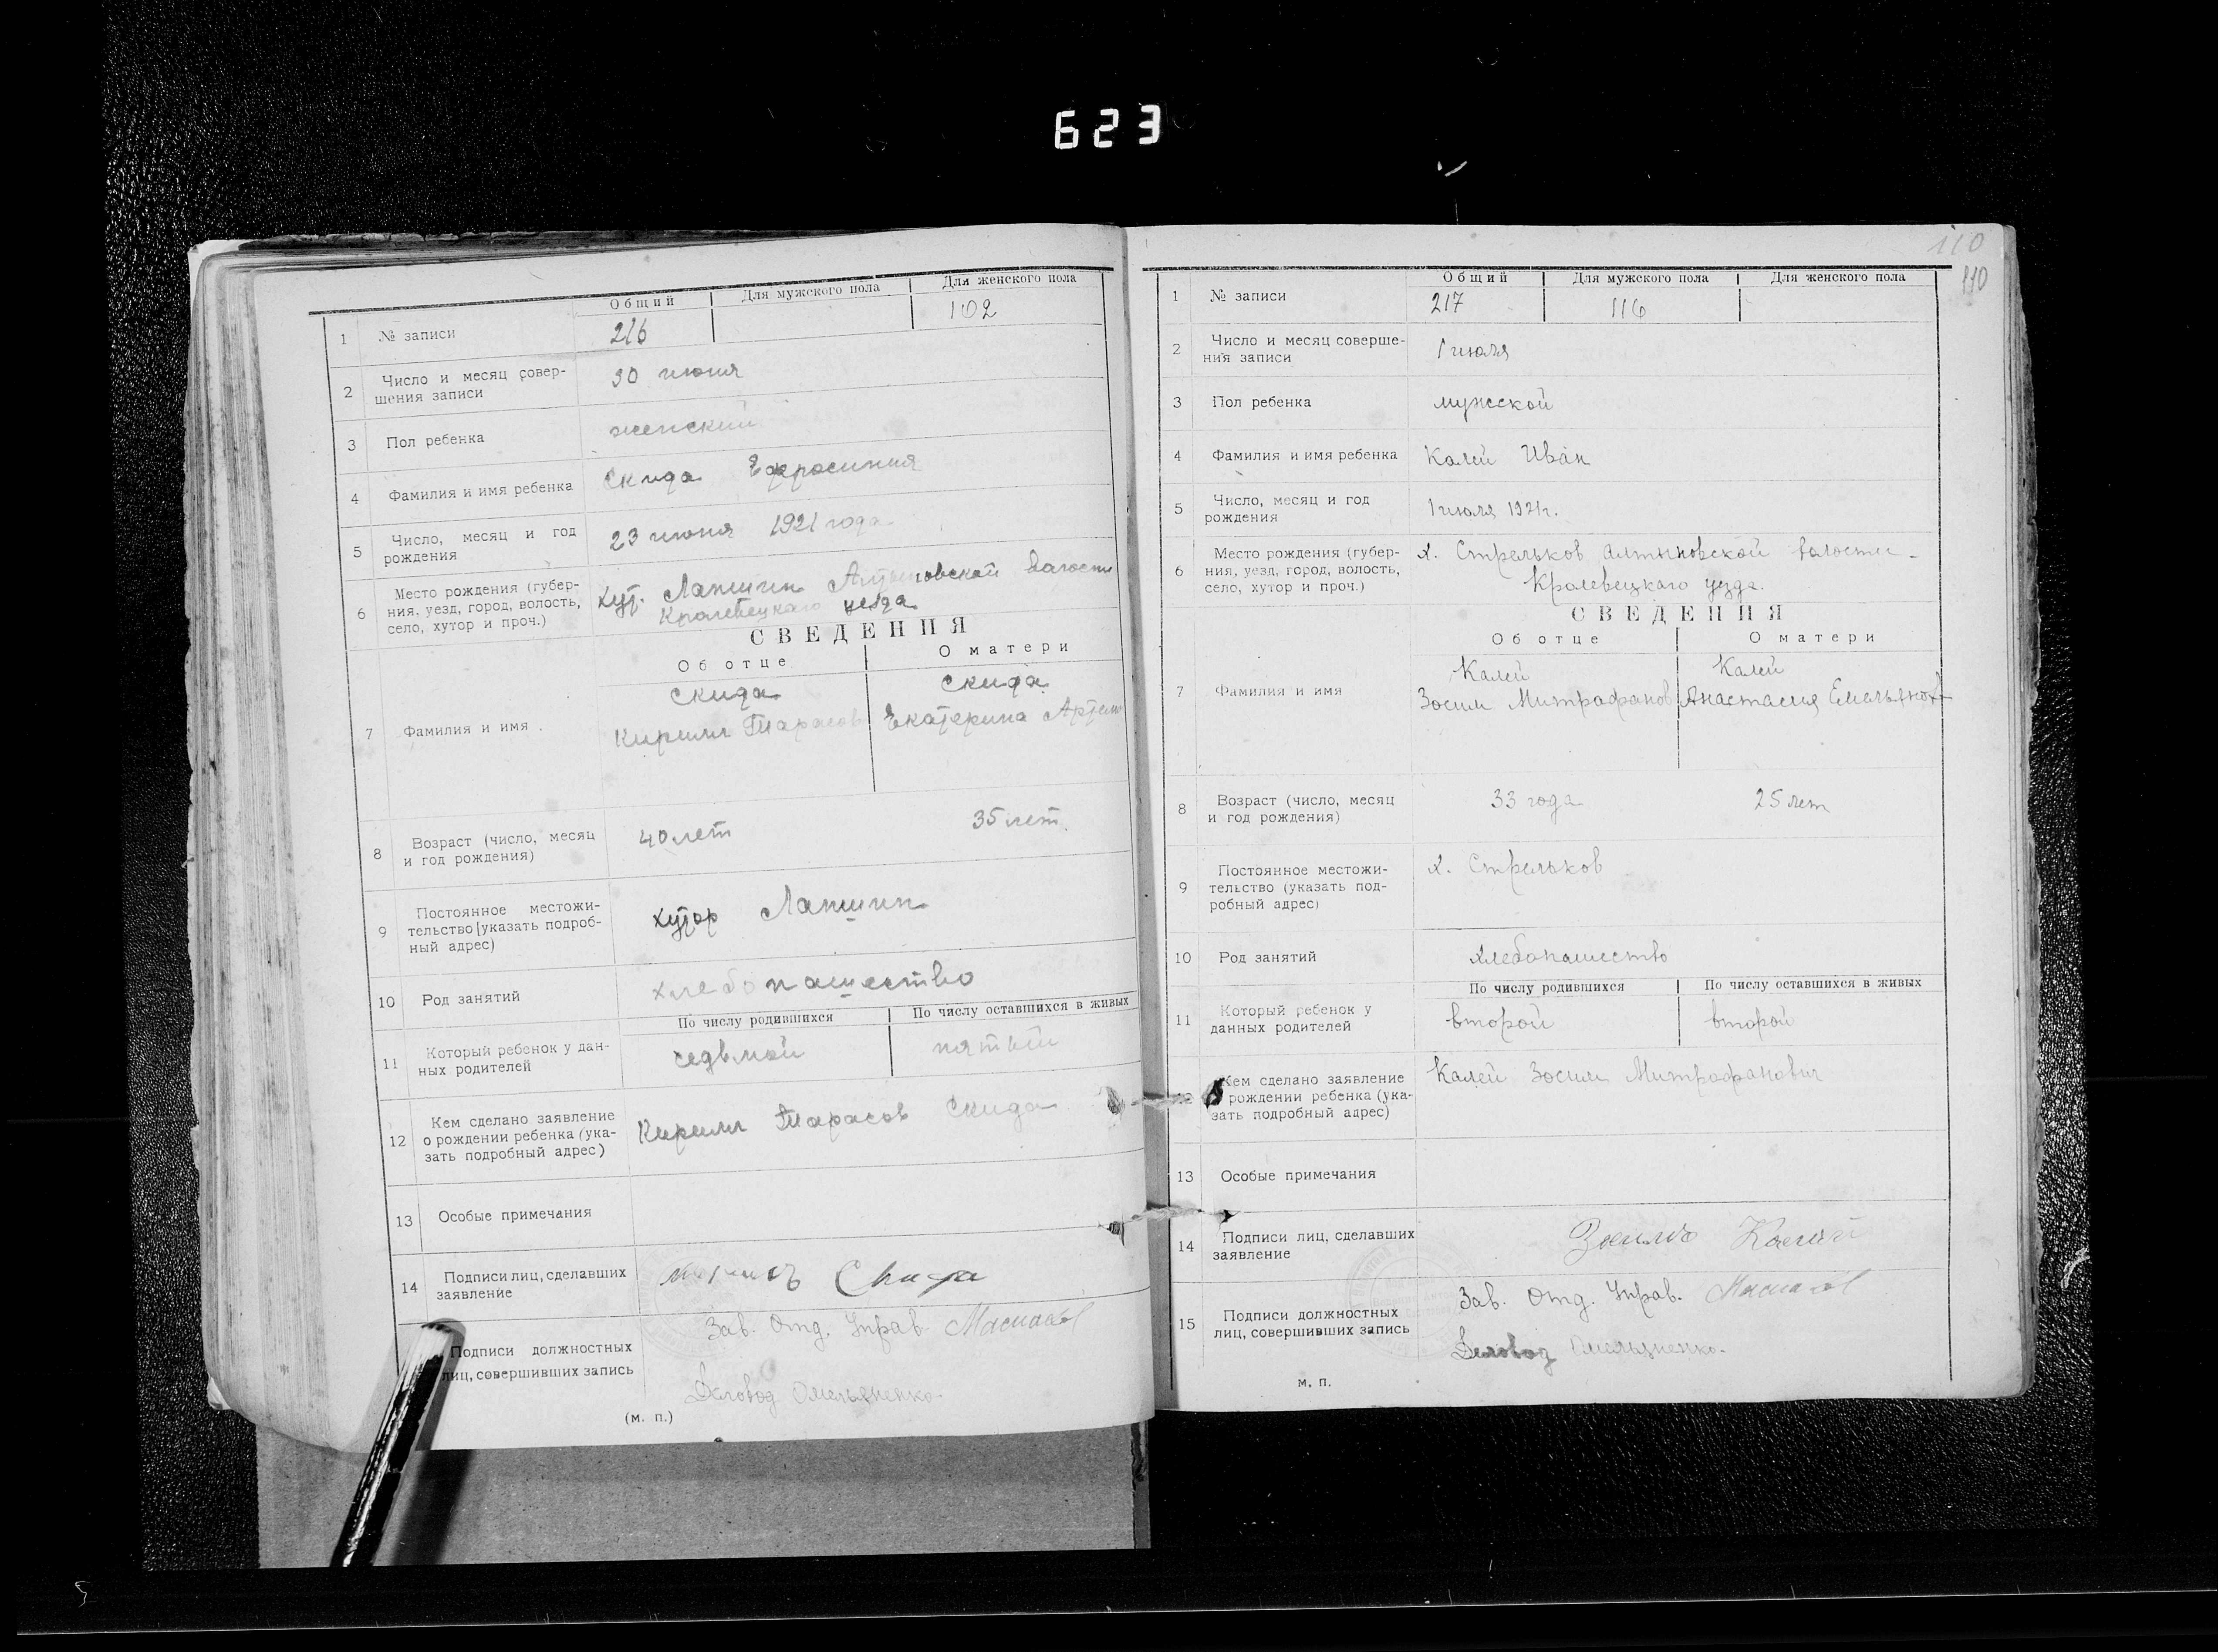 623
Общий Для мужского пола Для женского пола
1 № записи 216 102
2 Число и месяц совер-
шения записи 30 июня
3 Пол ребенка женский
4 Фамилия и имя ребенка Скида Ефросиния
5 Число, месяц и год
рождения 23 июня 1921 года
6 Место рождения (губер-
ния, уезд, город, волость,
село, хутор и проч.)
хут. Лапшин Алтыновской волости
Кролевецкого уезда
СВЕДЕНИЯ
Об отце О матери
7 Фамилия и имя
Скида Скида
Кирилл Тарасов Екатерина Артем
8 Возраст (число, месяц
и год рождения) 40 лет 35 лет.
9 Постоянное местожи-
тельство [указать подроб-
ный адрес) хутор Лапшин
10 Род занятий хлебопашество
По числу родившихся По числу оставшихся в живых
11 Который ребенок у дан-
ных родителей седьмой пятый
12 Кем сделано заявление
о рождении ребенка (ука-
зать подробный адрес) Кирилл Тарасов Скида
13 Особые примечания
14 Подписи лиц, сделавших
заявление Скида
Подписи должностных
лиц, совершивших запись
Зав. Отд. Управ.
Деловод Омельяненко.
(м. п.)
110
110
Общий Для мужского пола Для женского пола
1 № записи 217 116
2 Число и месяц соверше-
ния записи 1 июля
3 Пол ребенка мужской
4 Фамилия и имя ребенка Калей Иван
5 Число, месяц и год
рождения 1 июля 1921 г.
6 Место рождения (губер-
ния, уезд, город, волость,
село, хутор и проч.)
х. Стрельков Алтыновской волости
Кролевецкаго уезда.
СВЕДЕНИЯ
Об отце О матери
7 Фамилия и имя
Калей Калей
Зосим Митрофанов Анастасия Емельянов
8 Возраст (число, месяц
и год рождения) 33 года 25 лет
9 Постоянное местожи-
тельство (указать под-
робный адрес) х. Стрельков
10 Род занятий хлебопашество
По числу родившихся По числу оставшихся в живых
11 Который ребенок у
данных родителей второй второй
12 Кем сделано заявление
рождении ребенка (ука-
зать подробный адрес) Калей Зосим Митрофанович
13 Особые примечания
14 Подписи лиц, сделавших
заявление Зосимъ Калей
15 Подписи должностных
лиц, совершивших запись
Зав. Отд. Управ.
Деловод Омельяненко.
м. п.